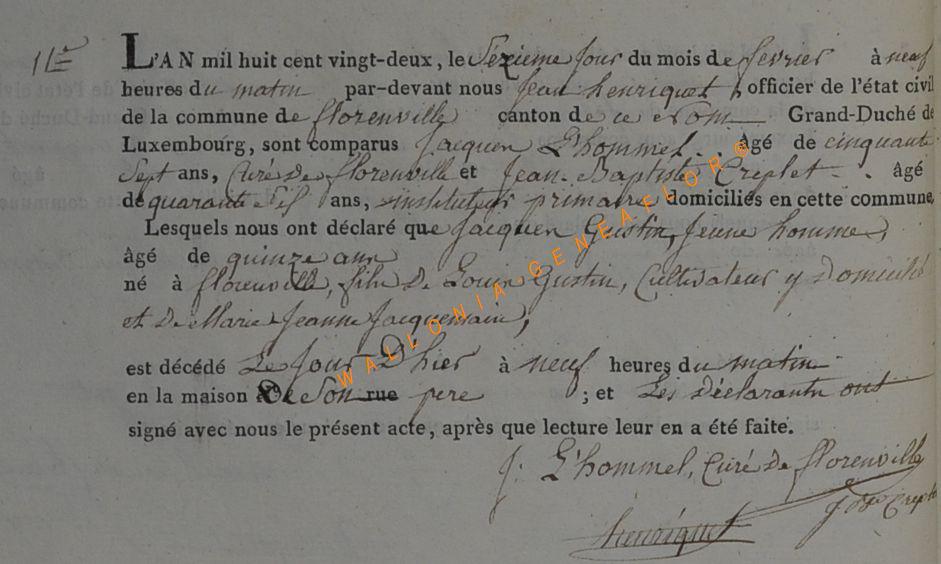 11e
L'AN mil huit cent vingt-deux, le Sezieme Jour du mois de fevrier à neuf
heures du matin par-devant nous Jean henriquet, officier de l'état civil
de la commune de florenville canton de ce nom Grand-Duché de
Luxembourg, sont comparus Jacques L'hommel. âgé de cinquante
Sept ans, Curé de florenville et Jean-Baptiste Creplet. âgé
de quarante Six ans, instituteur primaire domiciliés en cette commune,
Lesquels nous ont déclaré que Jacques Gustin, Jeune homme,
âgé de quinze ans
né à florenville, fils de Louis Gustin, Cultivateur y Domicilié
et de Marie Jeanne Jacquemain,
est décédé Le Jour D'hier à neuf heures du matin
en la maison De Son rue pere ; et Les Déclarants ont
signé avec nous le présent acte, après que lecture leur en a été faite.
J. L'hommel, Curé De florenville
J Bte Creplet
Henriquet
WALLONIA GENEAFLOR©